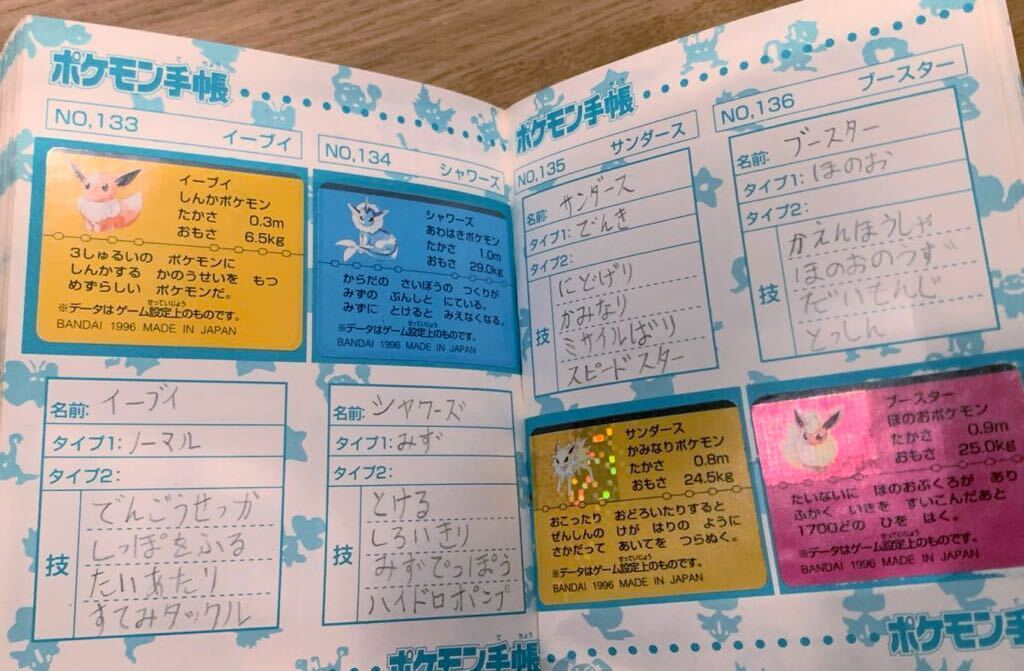 ポケモン手帳
NO,133
イーブイ
イーブイ
しんかポケモン
たかさ 0.3m
おもさ 6.5kg
3しゅるいの ポケモンに
しんかする かのうせいを もつ
めずらしい ポケモンだ。
※データはゲーム設定上のものです。
BANDAI 1996 MADE IN JAPAN
名前: イーブイ
タイプ1: ノーマル
タイプ2:
技
でんこうせっか
しっぽをふる
たいあたり
すてみタックル
NO,134
シャワーズ
シャワーズ
あわはきポケモン
たかさ 1.0m
おもさ 29.0kg
からだの さいぼうの つくりが
みずの ぶんしと にている。
みずに とけると みえなくなる。
※データはゲーム設定上のものです。
BANDAI 1996 MADE IN JAPAN
名前: シャワーズ
タイプ1: みず
タイプ2:
技
とける
しろいきり
みずでっぽう
ハイドロポンプ
ポケモン手帳
ポケモン手帳
NO,135
サンダース
名前: サンダース
タイプ1: でんき
タイプ2:
技
にどげり
かみなり
ミサイルばり
スピードスター
サンダース
かみなりポケモン
たかさ 0.8m
おもさ 24.5kg
おこったり おどろいたりすると
ぜんしんの けが はりの ように
さかだって あいてを つらぬく。
※データはゲーム設定上のものです。
BANDAI 1996 MADE IN JAPAN
NO,136
ブースター
名前: ブースター
タイプ1: ほのお
タイプ2:
技
かえんほうしゃ
ほのおのうず
だいもんじ
とっしん
ブースター
ほのおポケモン
たかさ 0.9m
おもさ 25.0kg
たいないに ほのおぶくろが あり
ふかく いきを すいこんだあと
1700どの ひを はく。
※データはゲーム設定上のものです。
BANDAI 1996 MADE IN JAPAN
ポケモン手帳